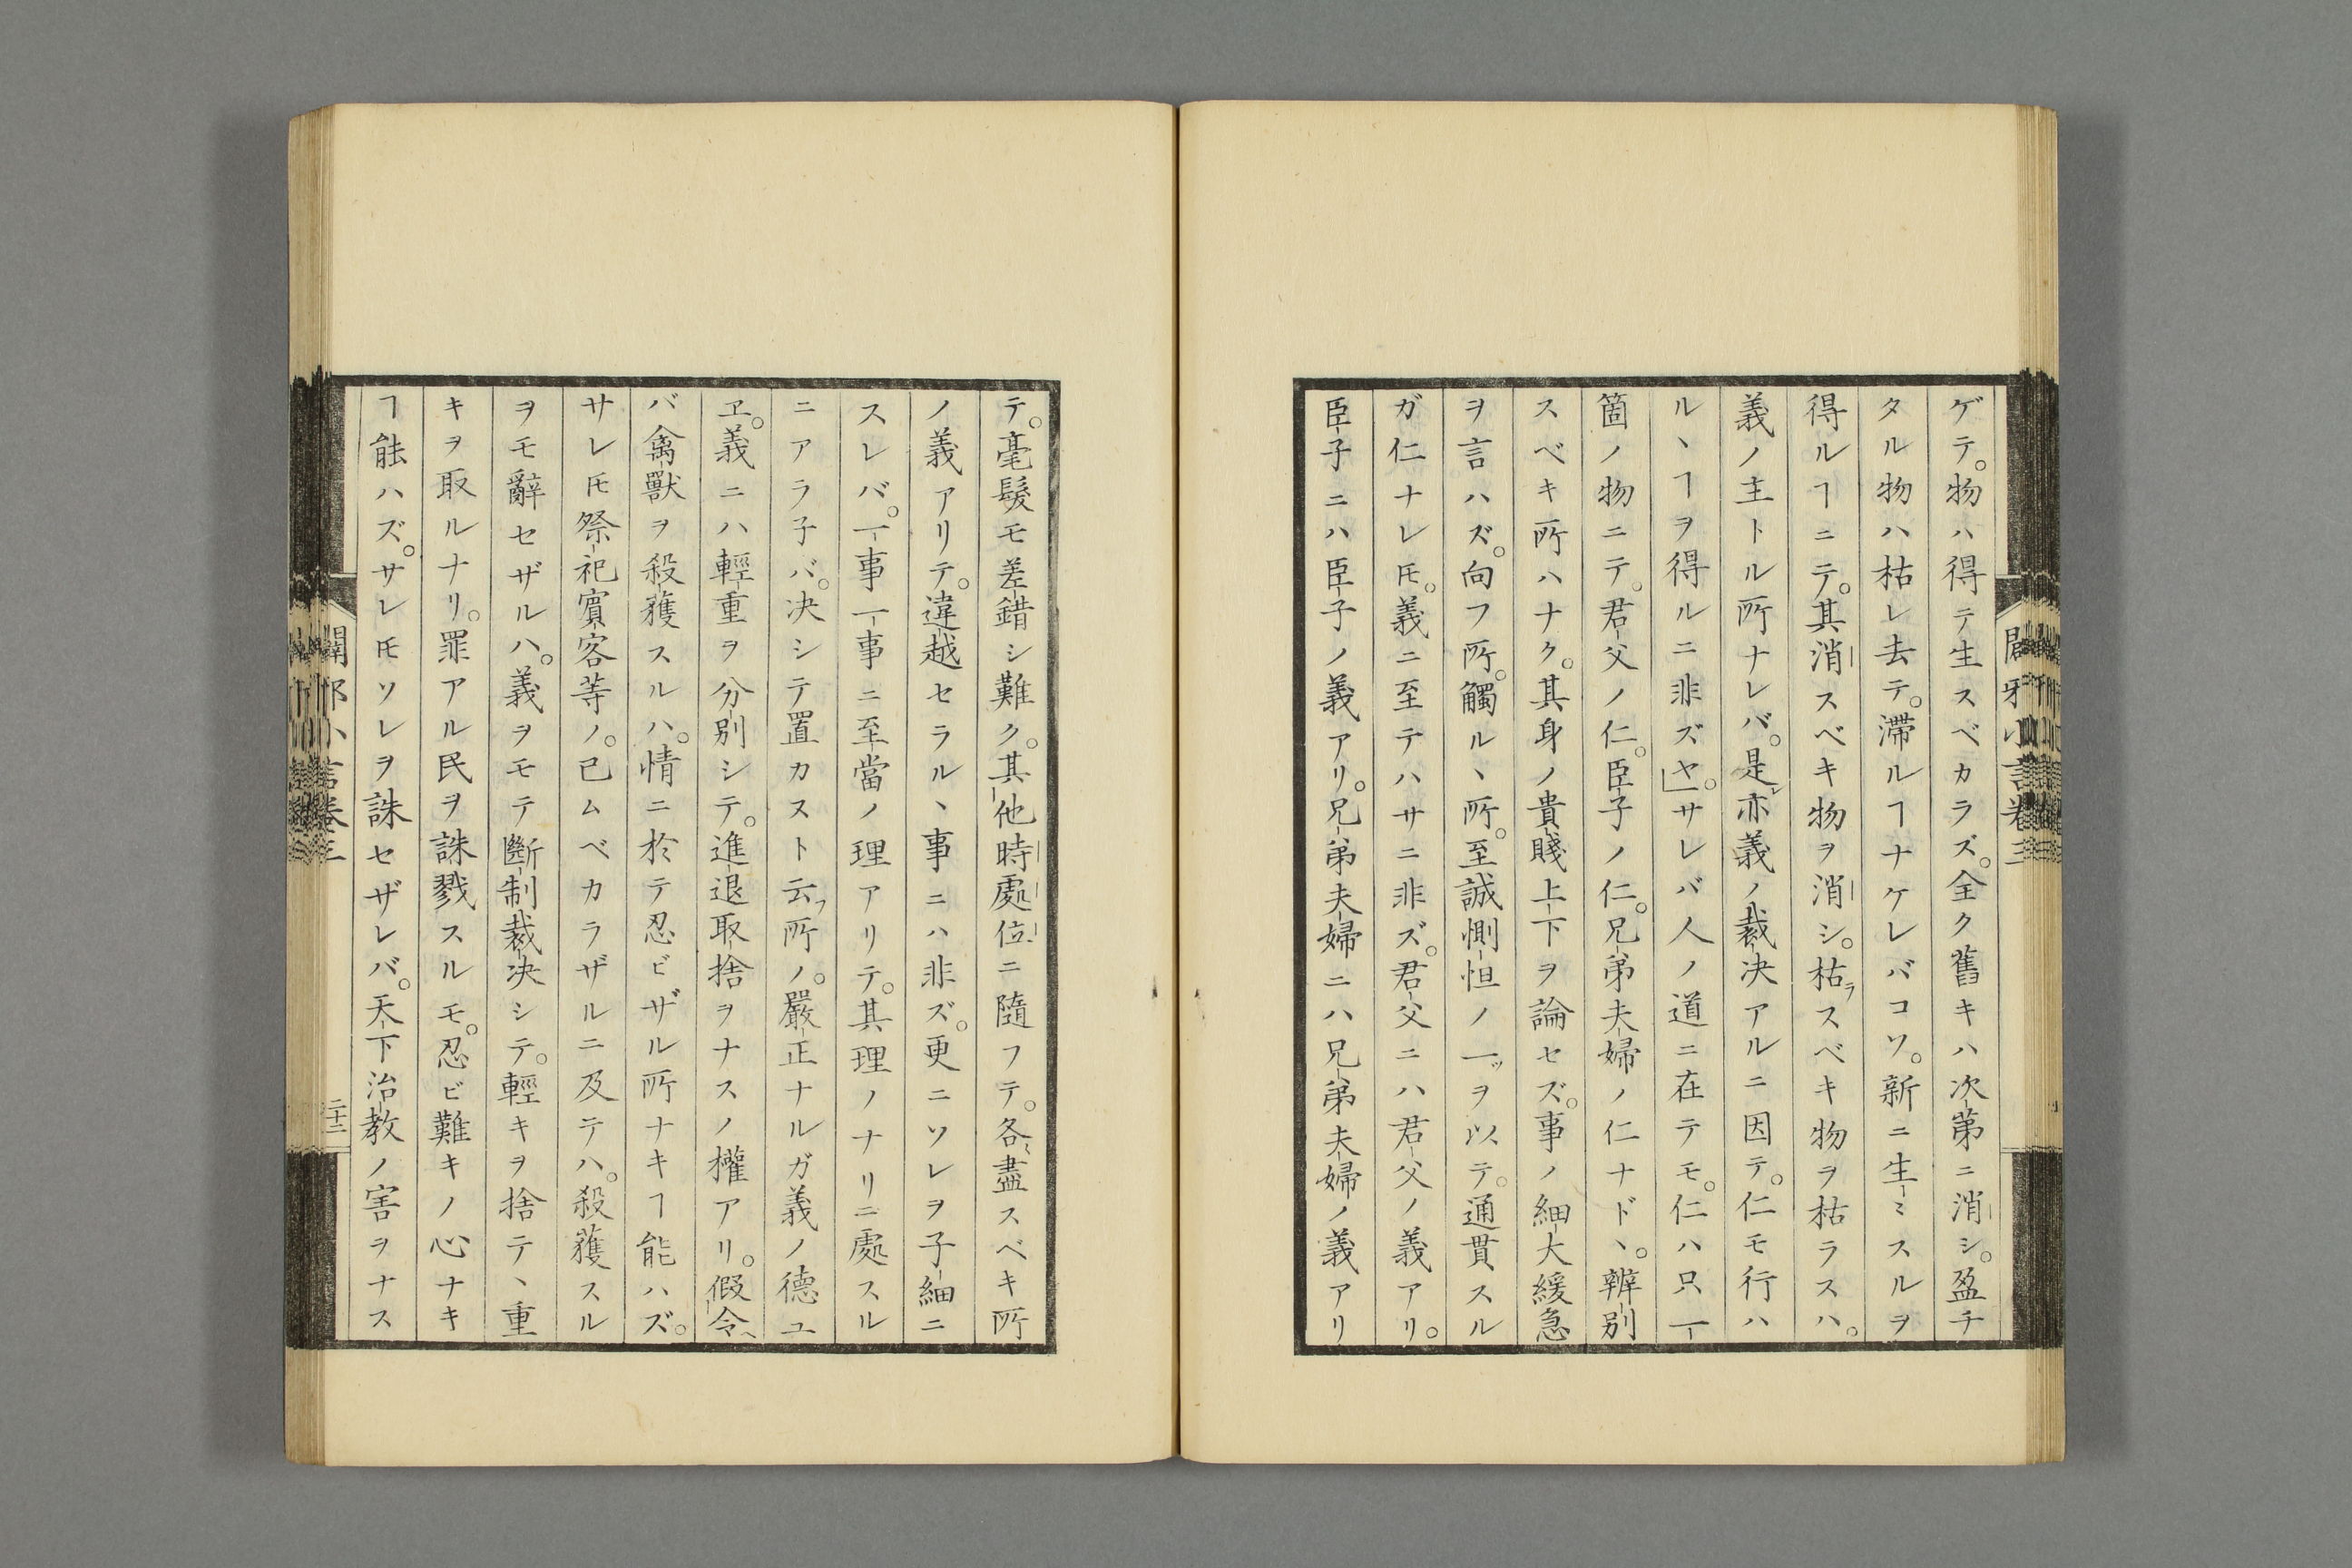 ゲテ。物ハ得テ生スベカラズ。全ク舊キハ次第ニ消シ。盈チ
タル物ハ枯レ去テ。滯ルヿナケレバコソ。新ニ生ミスルヲ
得ルヿニテ。其消スベキ物ヲ消シ。枯ラスベキ物ヲ枯ラスハ。
義ノ主トル所ナレバ。是レ亦義ノ裁決アルニ因テ。仁モ行ハ
ルヽヿヲ得ルニ非ズヤ。」サレバ人ノ道ニ在テモ。仁ハ只一
箇ノ物ニテ。君父ノ仁。臣子ノ仁。兄弟夫婦ノ仁ナドヽ。辨別
スベキ所ハナク。其身ノ貴賤上下ヲ論セズ。事ノ細大緩急
ヲ言ハズ。向フ所。觸ルヽ所。至誠惻怛ノ一ツヲ以テ。通貫スル
ガ仁ナレ𪜈。義ニ至テハサニ非ズ。君父ニハ君父ノ義アリ。
臣子ニハ臣子ノ義アリ。兄弟夫婦ニハ兄弟夫婦ノ義アリ
テ。毫髮モ差錯シ難ク。其他時處位ニ隨フテ。各〻盡スベキ所
ノ義アリテ。違越セラルヽ事ニハ非ズ。更ニソレヲ子細ニ
スレバ。一事一事ニ至當ノ理アリテ。其理ノナリニ處スル
ニアラ子バ。决シテ置カスト云フ所ノ。嚴正ナルガ義ノ德ユ
ヱ。義ニハ輕重ヲ分別シテ。進退取捨ヲナスノ權アリ。假令ヘ
バ禽獸ヲ殺獲スルハ。情ニ於テ忍ビザル所ナキヿ能ハズ。
サレ𪜈祭祀賓客等ノ。已ムベカラザルニ及テハ。殺獲スル
ヲモ辭セザルハ。義ヲモテ斷制裁决シテ。輕キヲ捨テヽ重
キヲ取ルナリ。罪アル民ヲ誅戮スルモ。忍ビ難キノ心ナキ
ヿ能ハズ。サレ𪜈ソレヲ誅セザレバ。天下治教ノ害ヲナス
闢邪小言卷三
二十二